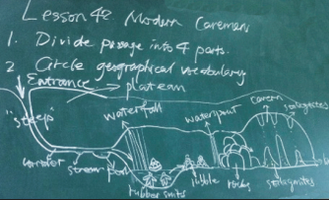 Lesson 42. Modern Cavemen
1. Divide passage into 4 parts.
2 Circle geographical vocabulary
Entrance
plateau
"steep"
waterfall
waterspout
cavern
stalagmites
corridor
stream
pool
rubber suits
rubble
rocks
stalagmites